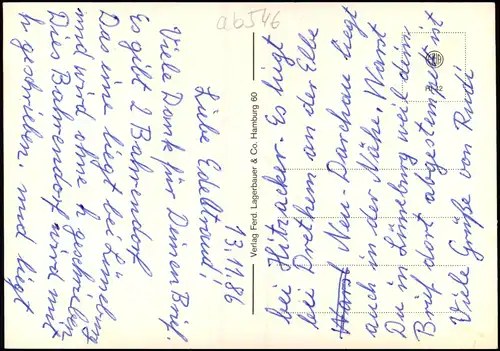 ab546
13.11.86
Liebe Edeltraud!
Viele Dank für Deinen Brief.
Es gibt 2 Bahrendorf
Das eine liegt bei Lüneburg
und wird ohne h geschrieben
Dies Bahrendorf wird mit
h geschrieben. und liegt
Verlag Ferd. Lagerbauer & Co. Hamburg 60
bei Hitzacker. Es liegt
bei Drethem an der Elbe
Neu-Darchau liegt
auch in der Nähe. Warst
Du in Lüneburg weil dein
Brief dort abgestempelt ist
Viele Grüße von Rudi